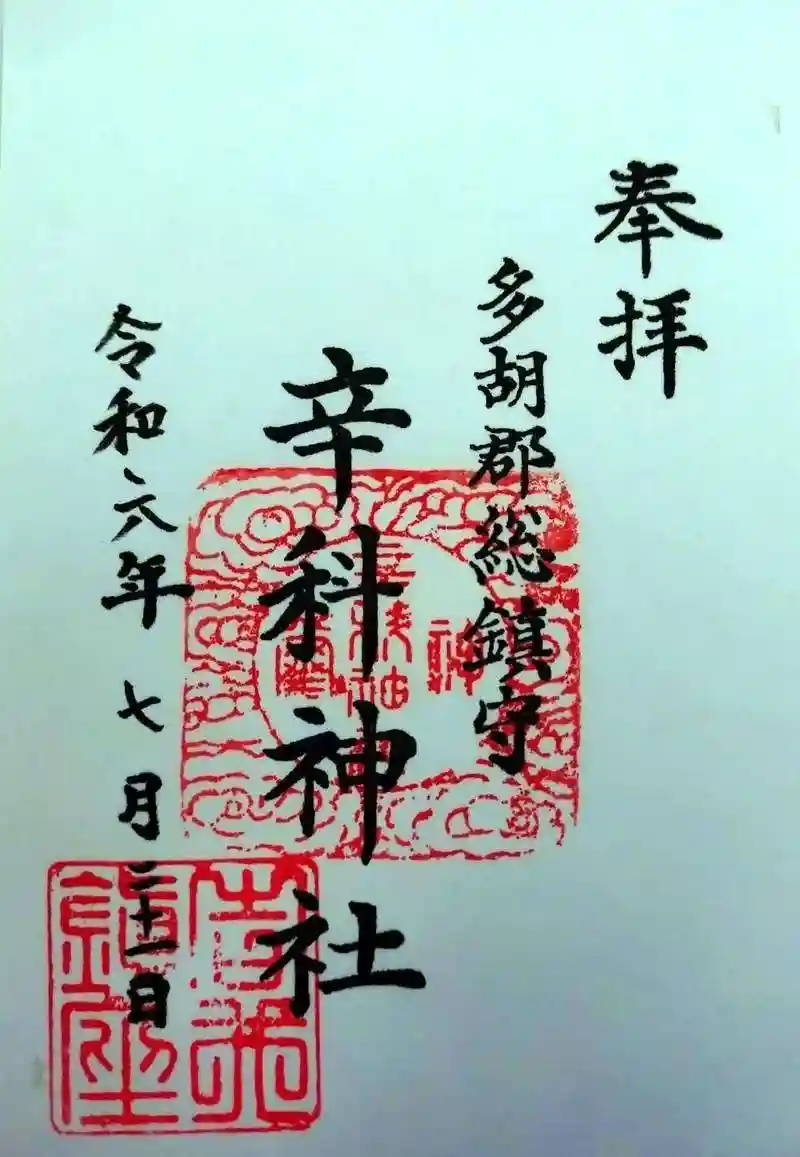 奉拝
多胡郡総鎮守
辛科神社
令和六年 七月二十一日